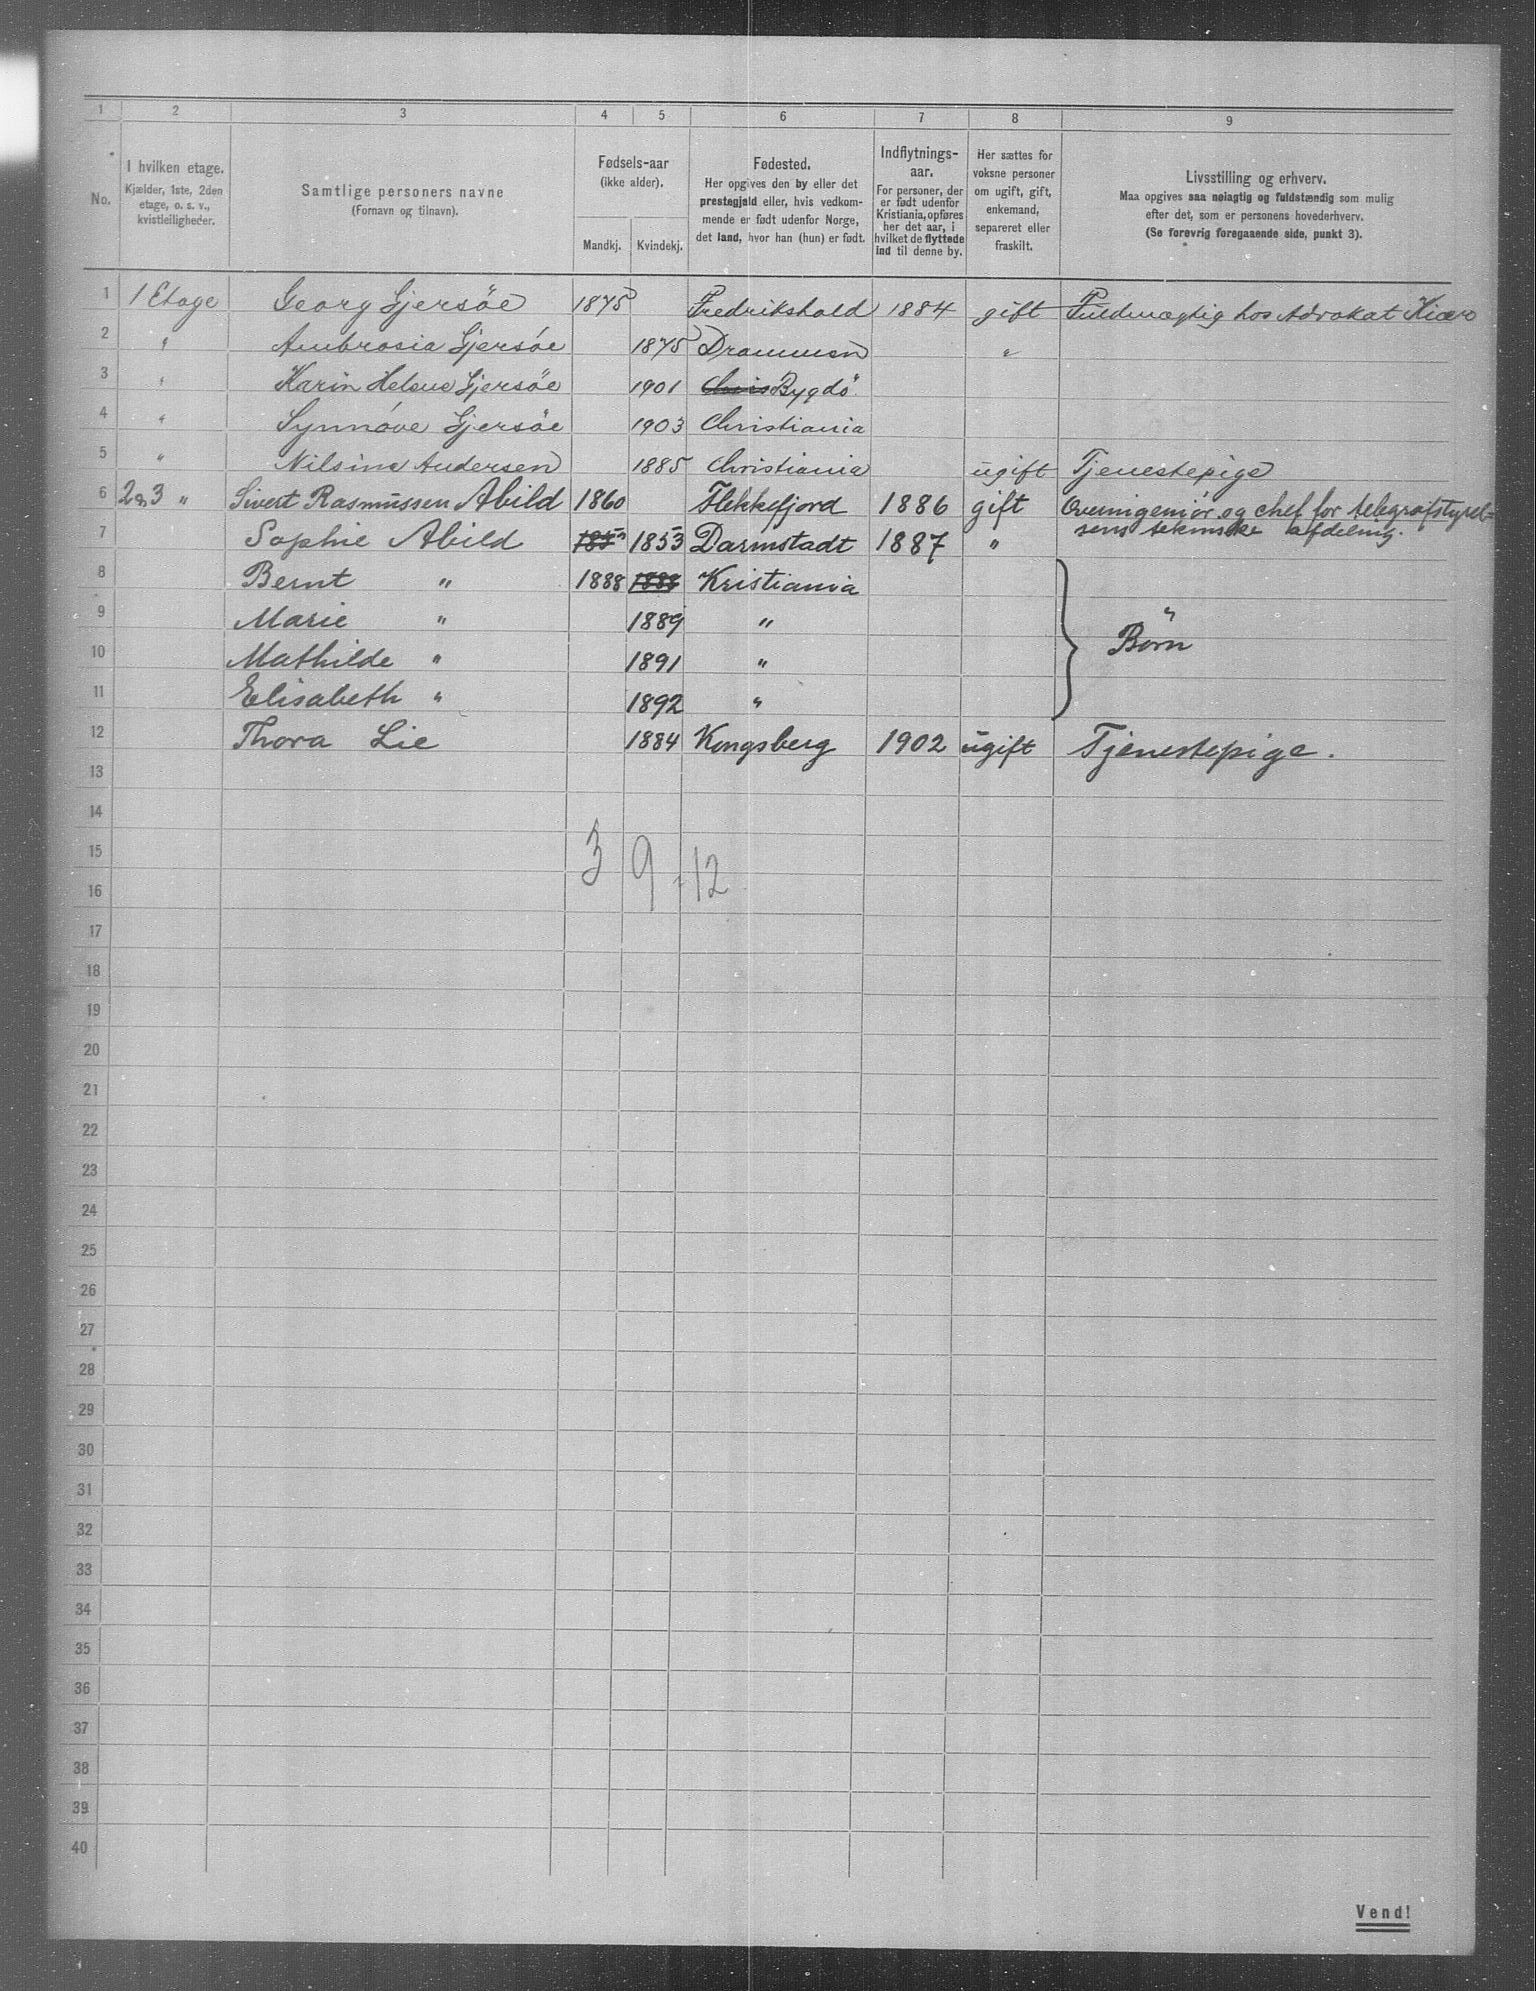 1 2 3 4 5 6 7 8 9
No.
I hvilken etage.
Kjælder, 1ste, 2den
etage, o. s. v.,
kvistleiligheder.
Samtlige personers navne
(Fornavn og tilnavn).
Fødsels-aar
(ikke alder).
Mandkj. Kvindekj.
Fødested.
Her opgives den by eller det
prestegjeld eller, hvis vedkom-
mende er født udenfor Norge,
det land, hvor han (hun) er født.
Indflytnings-
aar.
For personer, der
er født udenfor
Kristiania, opføres
her det aar, i
hvilket de flyttede
ind til denne by.
Her sættes for
voksne personer
om ugift, gift,
enkemand,
separeret eller
fraskilt.
Livsstilling og erhverv.
Maa opgives saa nøiagtig og fuldstændig som mulig
efter det, som er personens hovederhverv.
(Se forøvrig foregaaende side, punkt 3).
1 1 Etage Georg Gjersöe 1875 Fredrikshald 1884 gift Fuldmægtig hos Advokat Kiær
2 " Ambrosia Gjersöe 1875 Drammen "
3 " Karin Helene Gjersöe 1901 Chris Bygdö
4 " Synnöve Gjersöe 1903 Christiania
5 " Nilsine Andersen 1885 Christiania ugift Tjenestepige
6 2 og 3 " Sivert Rasmussen Abild 1860 Flekkefjord 1886 gift Overingeniør og chef for telegrafstyrel-
sens tekniske afdeling.
7 Sophie Abild 1853 1853 Darmstadt 1887 "
8 Bernt " 1888 1888 Kristiania
9 Marie " 1889 "
Børn
10 Mathilde " 1891 "
11 Elisabeth " 1892 "
12 Thora Lie 1884 Kongsberg 1902 ugift Tjenestepige.
13
14
15
3 9 12
16
17
18
19
20
21
22
23
24
25
26
27
28
29
30
31
32
33
34
35
36
37
38
39
40
Vend!